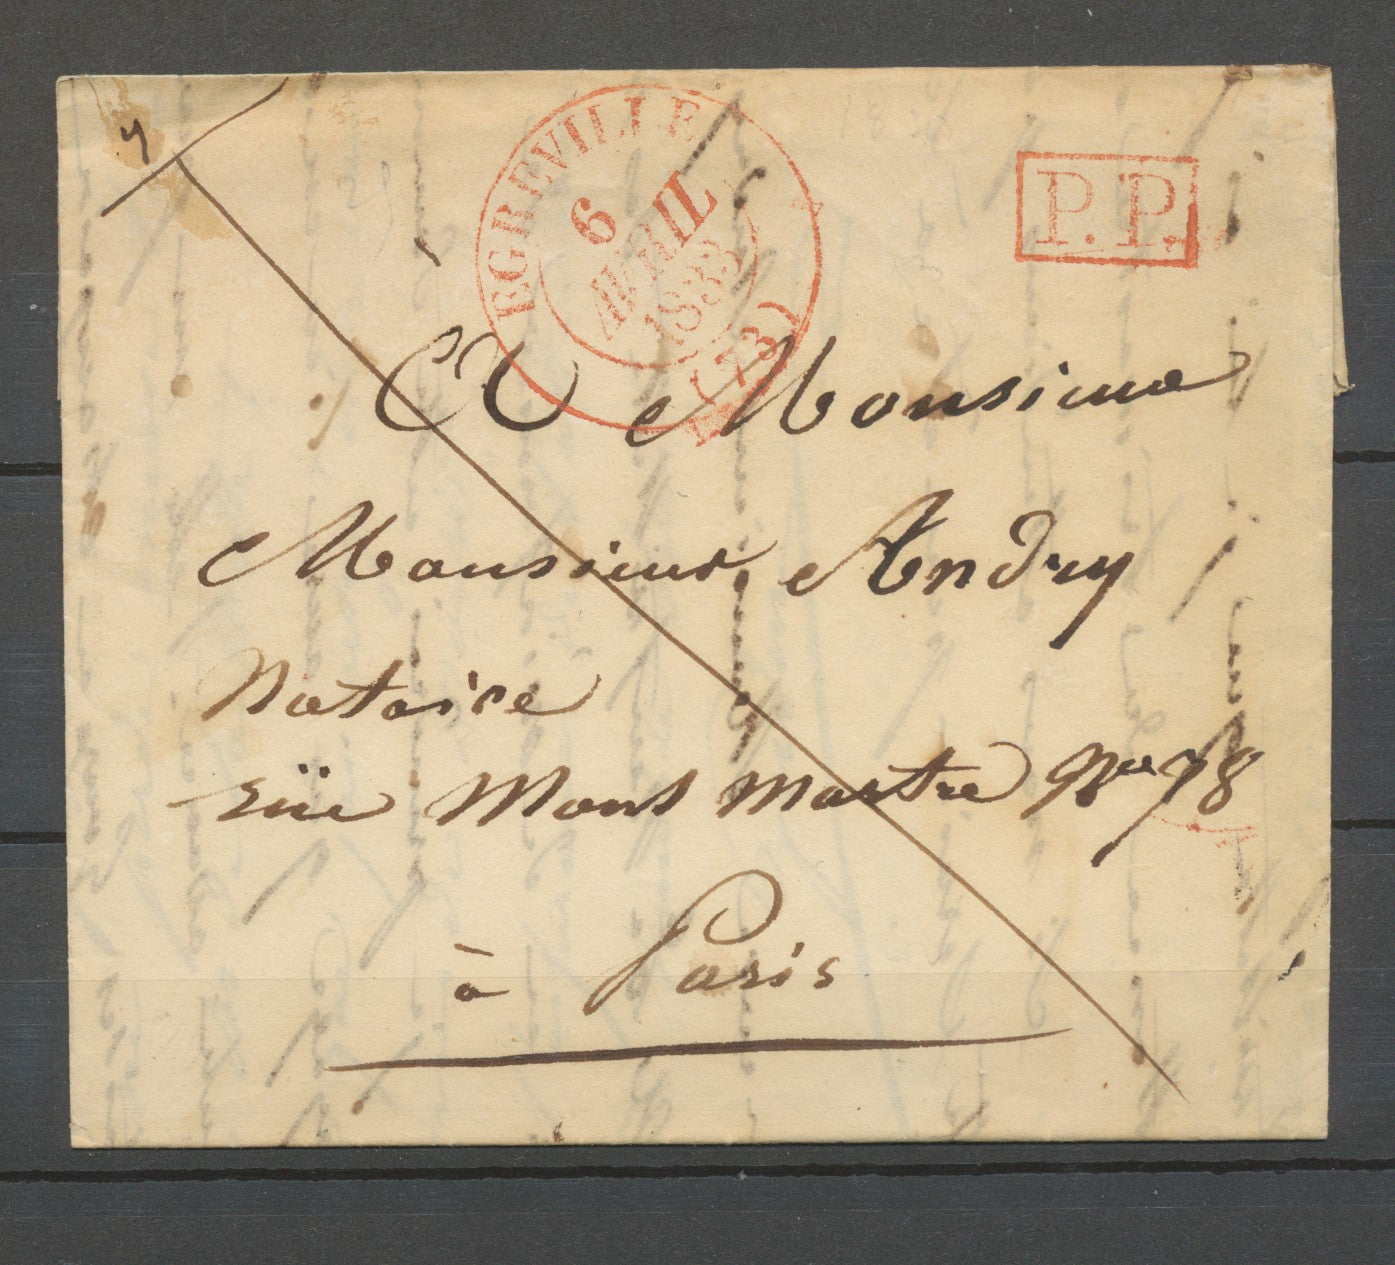 EGREVILLE
6
AVRIL
1833
(73)
P.P.
A Monsieur
Monsieur Andry
Notaire
rüe Mont martre No 78
à Paris